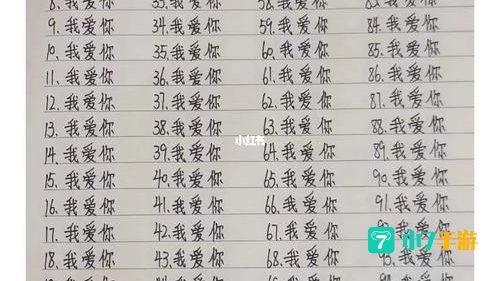 8.我爱你 33.我爱你 58.我爱你 83.我爱你
9.我爱你 34.我爱你 59.我爱你 84.我爱你
10.我爱你 35.我爱你 60.我爱你 85.我爱你
11.我爱你 36.我爱你 61.我爱你 86.我爱你
12.我爱你 37.我爱你 62.我爱你 87.我爱你
13.我爱你 38.我爱你 63.我爱你 88.我爱你
小红书
14.我爱你 39.我爱你 64.我爱你 89.我爱你
15.我爱你 40.我爱你 65.我爱你 90.我爱你
16.我爱你 41.我爱你 66.我爱你 91.我爱你
17.我爱你 42.我爱你 67.我爱你 92.我爱你
小7手游
18.我爱你 43.我爱你 68.我爱你 93.我爱你